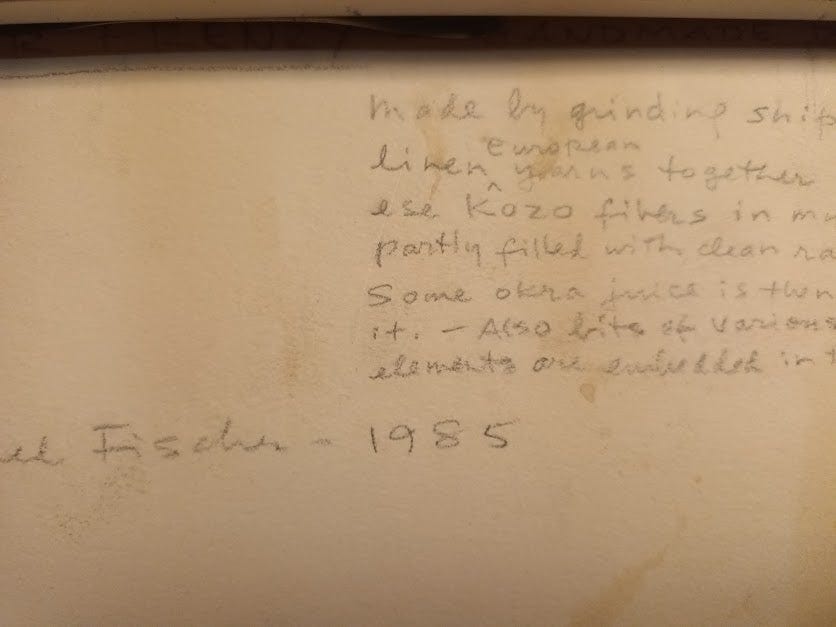 HANDMADE
Made by grinding ship
European
linen yarns together
ese Kozo fibers in mu
partly filled with clean ra
Some okra juice is then
it. - Also bits of various
elements are embedded in t
el Fischer - 1985